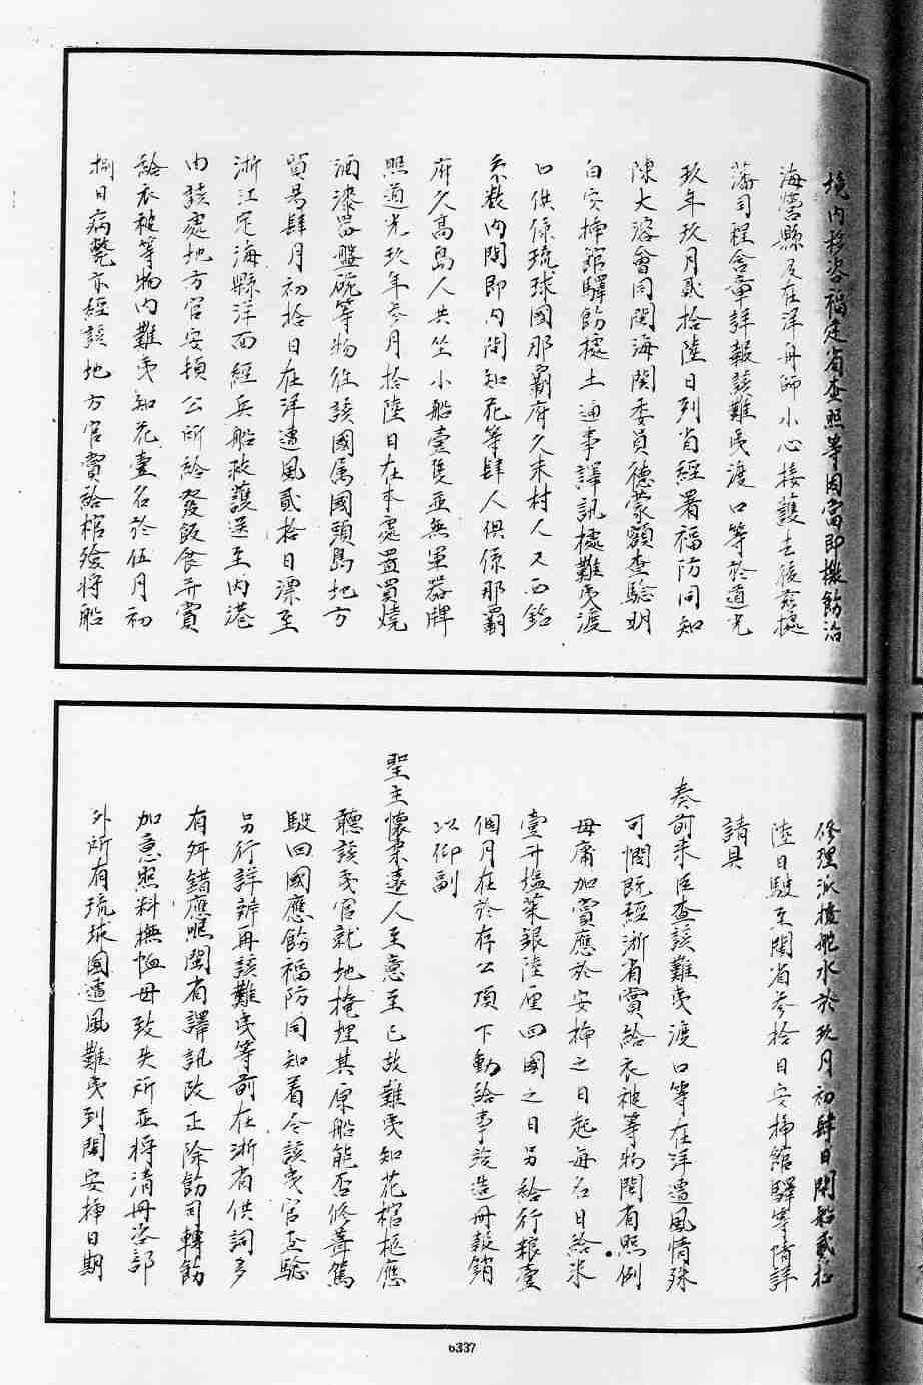 境內移咨福建省查照等因當即檄飭沿
海營縣及在洋舟師小心接護去後茲據
藩司程含章詳報該難夷渡口等於道光
玖年玖月貳拾陸日到省經署福防同知
陳大溶會同閩海關委員德蒙額查驗明
白安插館驛飭據土通事譯訊據難夷渡
口供係琉球國那霸府久米村人又西銘
系數內間即內間知花等肆人俱係那霸
府久高島人共坐小船壹隻並無軍器牌
照道光玖年叁月拾陸日在本處置買燒
酒漆器盤碗等物往該國屬國頭島地方
貿易肆月初拾日在洋遭風貳拾日漂至
浙江定海縣洋面經兵船救護送至內港
由該處地方官安頓公所給發飯食并賞
給衣被等物內難夷知花壹名於伍月初
捌日病斃亦經該地方官賞給棺殮將船
修理派撥舵水於玖月初肆日開船貳拾
陸日駛至閩省叁拾日安插館驛等情詳
請具
奏前來臣查該難夷渡口等在洋遭風情殊
可憫既經浙省賞給衣被等物閩省照例
毋庸加賞應於安插之日起每名日給米
壹升塩菜銀陸厘回國之日另給行粮壹
個月在於存公項下動給事竣造冊報銷
以仰副
聖主懷柔遠人至意至已故難夷知花棺柩應
聽該夷官就地掩埋其原船能否修葺駕
駛回國應飭福防同知着令該夷官查驗
另行詳辦再該難夷等前在浙省供詞多
有舛錯應照閩省譯訊改正除飭司轉飭
加意照料撫恤毋致失所並將清冊咨部
外所有琉球國遭風難夷到閩安插日期
6337